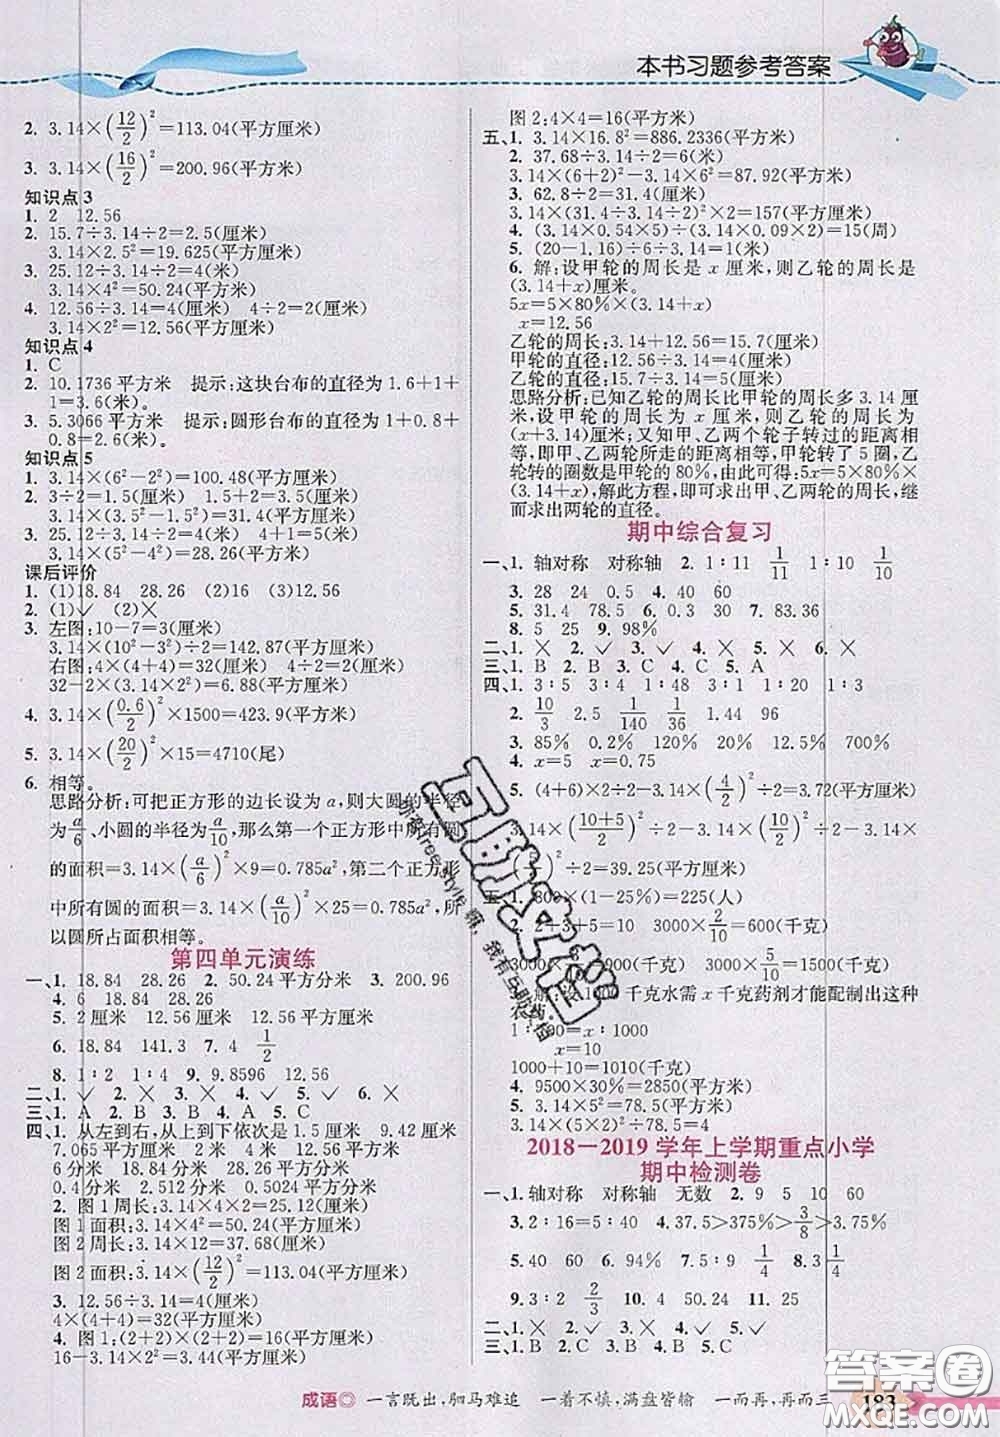 本书习题参考答案
2. 3.14×(12/2)²=113.04(平方厘米)
3. 3.14×(16/2)²=200.96(平方米)
知识点3
1. 2 12.56
2. 15.7÷3.14÷2=2.5(厘米)
3.14×2.5²=19.625(平方厘米)
3. 25.12÷3.14÷2=4(米)
3.14×4²=50.24(平方米)
4. 12.56÷3.14=4(厘米) 4÷2=2(厘米)
3.14×2²=12.56(平方厘米)
知识点4
1. C
2. 10.1736平方米 提示:这块台布的直径为1.6+1+
1=3.6(米)。
3. 5.3066平方米 提示:圆形台布的直径为1+0.8+
0.8=2.6(米)。
知识点5
1. 3.14×(6²−2²)=100.48(平方米)
2. 3÷2=1.5(厘米) 1.5+2=3.5(厘米)
3.14×(3.5²−1.5²)=31.4(平方厘米)
3. 25.12÷3.14÷2=4(厘米)
3.14×(5²−4²)=28.26(平方厘米)
课后评价
1. (1)18.84 28.26 (2)16 (3)12.56
2. (1)✓ (2)×
3. 左图:10−7=3(厘米)
3.14×(10²−3²)÷2=142.87(平方厘米)
右图:4×(4+4)=32(平方厘米)
32−2×(3.14×2²)=6.88(平方厘米)
4. 3.14×(0.6/2)²×1500=423.9(平方米)
5. 3.14×(20/2)²×15=4710(尾)
6. 相等。
思路分析:可把正方形的边长设为a,则大圆的半径
为a/6、小圆的半径为a/10,那么第一个正方形中所有圆
的面积=3.14×(a/6)²×9=0.785a²,第二个正方形
中所有圆的面积=3.14×(a/10)²×25=0.785a²,所
以圆所占面积相等。
第四单元演练
一、1. 18.84 28.26 2. 50.24平方分米 3. 200.96
4. 6 18.84 28.26
5. 2厘米 12.56厘米 12.56平方厘米
6. 18.84 141.3 7. 4 1/2
8. 1∶2 1∶4 9. 9.8596 12.56
二、1. ✓ 2. × 3. × 4. ✓ 5. ✓ 6. ×
三、1. A 2. B 3. B 4. A 5. C
四、1. 从左到右,从上到下依次是1.5厘米 9.42厘米
7.065平方厘米 12厘米 6厘米 113.04平方厘米
0.4分米 2.512分米 0.5024平方分米
2. 图1周长:3.14×4×2=25.12(厘米)
图1面积:3.14×4²=50.24(平方厘米)
图2周长:3.14×12=37.68(厘米)
图2面积:3.14×(12/2)²=113.04(平方厘米)
3. 12.56÷3.14=4(厘米)
4×(4+4)=32(平方厘米)
4. 图1:(2+2)×(2+2)=16(平方米)
16−3.14×2²=3.44(平方米)
图2:4×4=16(平方米)
五、1. 3.14×16.8²=886.2336(平方米)
2. 37.68÷3.14÷2=6(米)
3.14×(6+2)²−3.14×6²=87.92(平方米)
3. 62.8÷2=31.4(厘米)
3.14×(31.4÷3.14÷2)²×2=157(平方厘米)
4. (3.14×0.54×5)÷(3.14×0.09×2)=15(周)
5. (20−1.16)÷6÷3.14=1(米)
6. 解:设甲轮的周长是x厘米,则乙轮的周长是
(3.14+x)厘米。
5x=5×80%×(3.14+x)
x=12.56
乙轮的周长:3.14+12.56=15.7(厘米)
甲轮的直径:12.56÷3.14=4(厘米)
乙轮的直径:15.7÷3.14=5(厘米)
思路分析:已知乙轮的周长比甲轮的周长多3.14厘
米,设甲轮的周长为x厘米,则乙轮的周长为
(x+3.14)厘米;又知甲、乙两个轮子转过的距离相
等,即甲、乙所走的距离相等,甲轮转了5圈,乙
轮转的圈数是甲轮的80%,由此可得:5x=5×80%×
(3.14+x),解此方程,即可求出甲、乙两轮的周长,继
而求出两轮的直径。
期中综合复习
一、1. 轴对称 对称轴 2. 1∶11 1/11 1∶10 1/10
3. 28 24 0.5 4. 40 60
5. 31.4 78.5 6. 0.3 30 7. 83.36
8. 5 25 9. 98%
二、1. × 2. ✓ 3. ✓ 4. × 5. × 6. ×
三、1. B 2. B 3. C 4. C 5. A
四、1. 3∶5 3∶4 1∶48 3∶1 1∶20 1∶3
2. 10/3 2.5 1/140 1/36 1.44 96
3. 85% 0.2% 120% 20% 12.5% 700%
4. x=5 x=0.75
5. (4+6)×2÷2−3.14×(4/2)²÷2=3.72(平方厘米)
3.14×((10+5)/2)²÷2−3.14×(10/2)²÷2−3.14×
÷2=39.25(平方厘米)
800×(1−25%)=600(人)
2+3+5=10 3000×2/10=600(千克)
(千克) 3000×5/10=1500(千克)
千克水需x千克药剂才能配制出这种
=x∶1000
x=10
1000+10=1010(千克)
4. 9500×30%=2850(平方米)
5. 3.14×5²=78.5(平方米)
3.14×(5×2)²÷4=78.5(平方米)
2018—2019学年上学期重点小学
期中检测卷
一、1. 轴对称 对称轴 无数 2. 9 5 10 60
3. 2∶16=5∶40 4. 37.5>375%>3/8>3.75%
5. 40 60 6. 94% 7. 5∶9 1/4 8. 3/4
9. 3∶2 2/3 10. 4.50 11. 25
二、1. × 2. ✓ 3. ✓ 4. × 5. ✓
三、1. B 2. C 3. B 4. B 5. C
成语◎ 一言既出,驷马难追 一着不慎,满盘皆输 一而再,再而三
183
答案圈
MXQE.COM